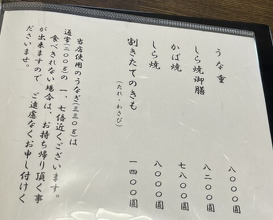 うな重 八〇〇〇圓
しら焼御膳 八二〇〇圓
かば焼 七八〇〇圓
しら焼 八〇〇〇圓
割きたてのきも 一四〇〇圓
(たれ・わさび)
当店使用のうなぎ(三三〇g)は
通常(二〇〇g)の一、七倍近くございます。
食べきれない場合は、お持ち帰り頂く事
が出来ますので、ご遠慮なくお申し付けく
ださいませ。